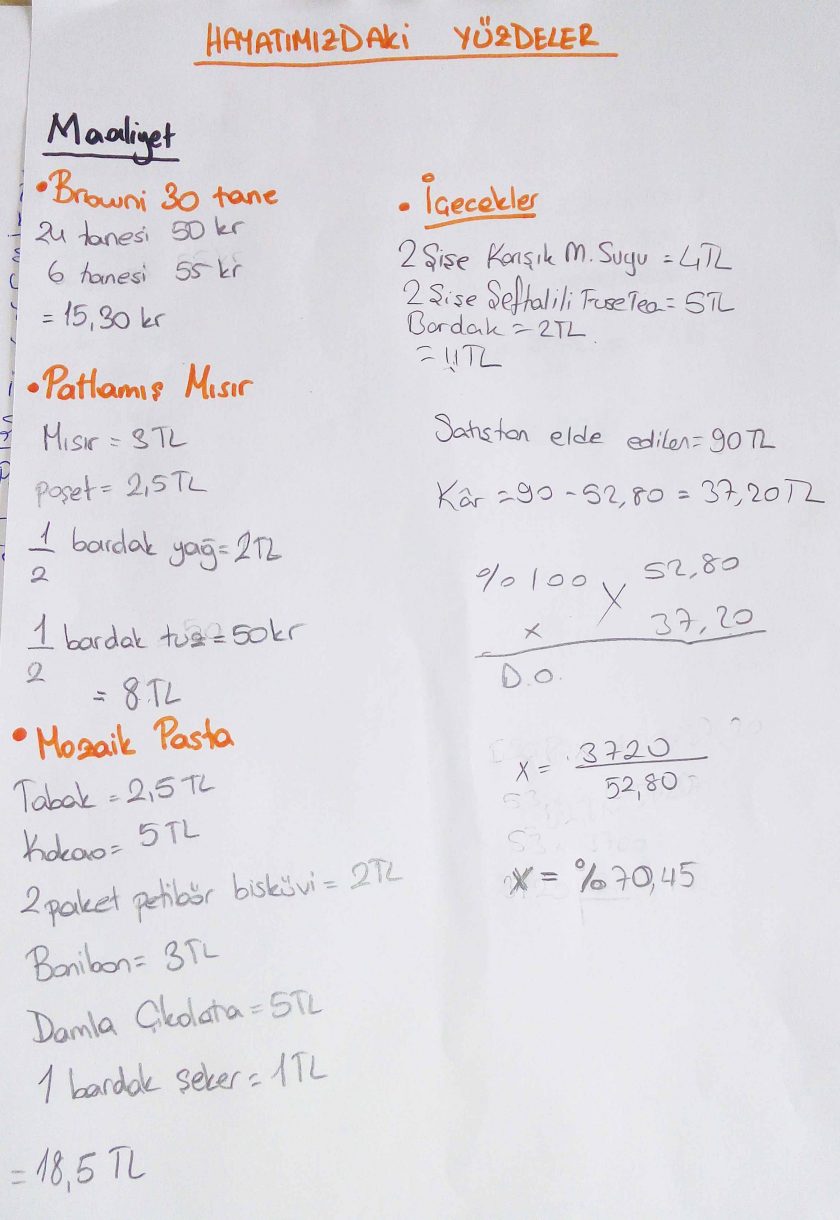 HAYATIMIZDAKi YÜZDELER
Maaliyet
• Browni 30 tane
24 tanesi 50 kr
6 tanesi 55 kr
= 15,30 kr
• Patlamış Mısır
Mısır = 3TL
poşet = 2,5TL
1/2 bardak yağ = 2TL
1/2 bardak tuz = 50kr
= 8TL
• Mozaik Pasta
Tabak = 2,5TL
Kakao = 5TL
2 paket petibör bisküvi = 2TL
Bonibon = 3TL
Damla Çikolata = 5TL
1 bardak şeker = 1TL
= 18,5 TL
• İçecekler
2 Şişe Karışık M. Suyu = 4TL
2 Şişe Şeftalili FuseTea = 5TL
Bardak = 2TL
= 11TL
Satıştan elde edilen = 90TL
Kâr = 90 - 52,80 = 37,20TL
%100 X 52,80
x 37,20
D.O.
x = 3720/52,80
x = %70,45